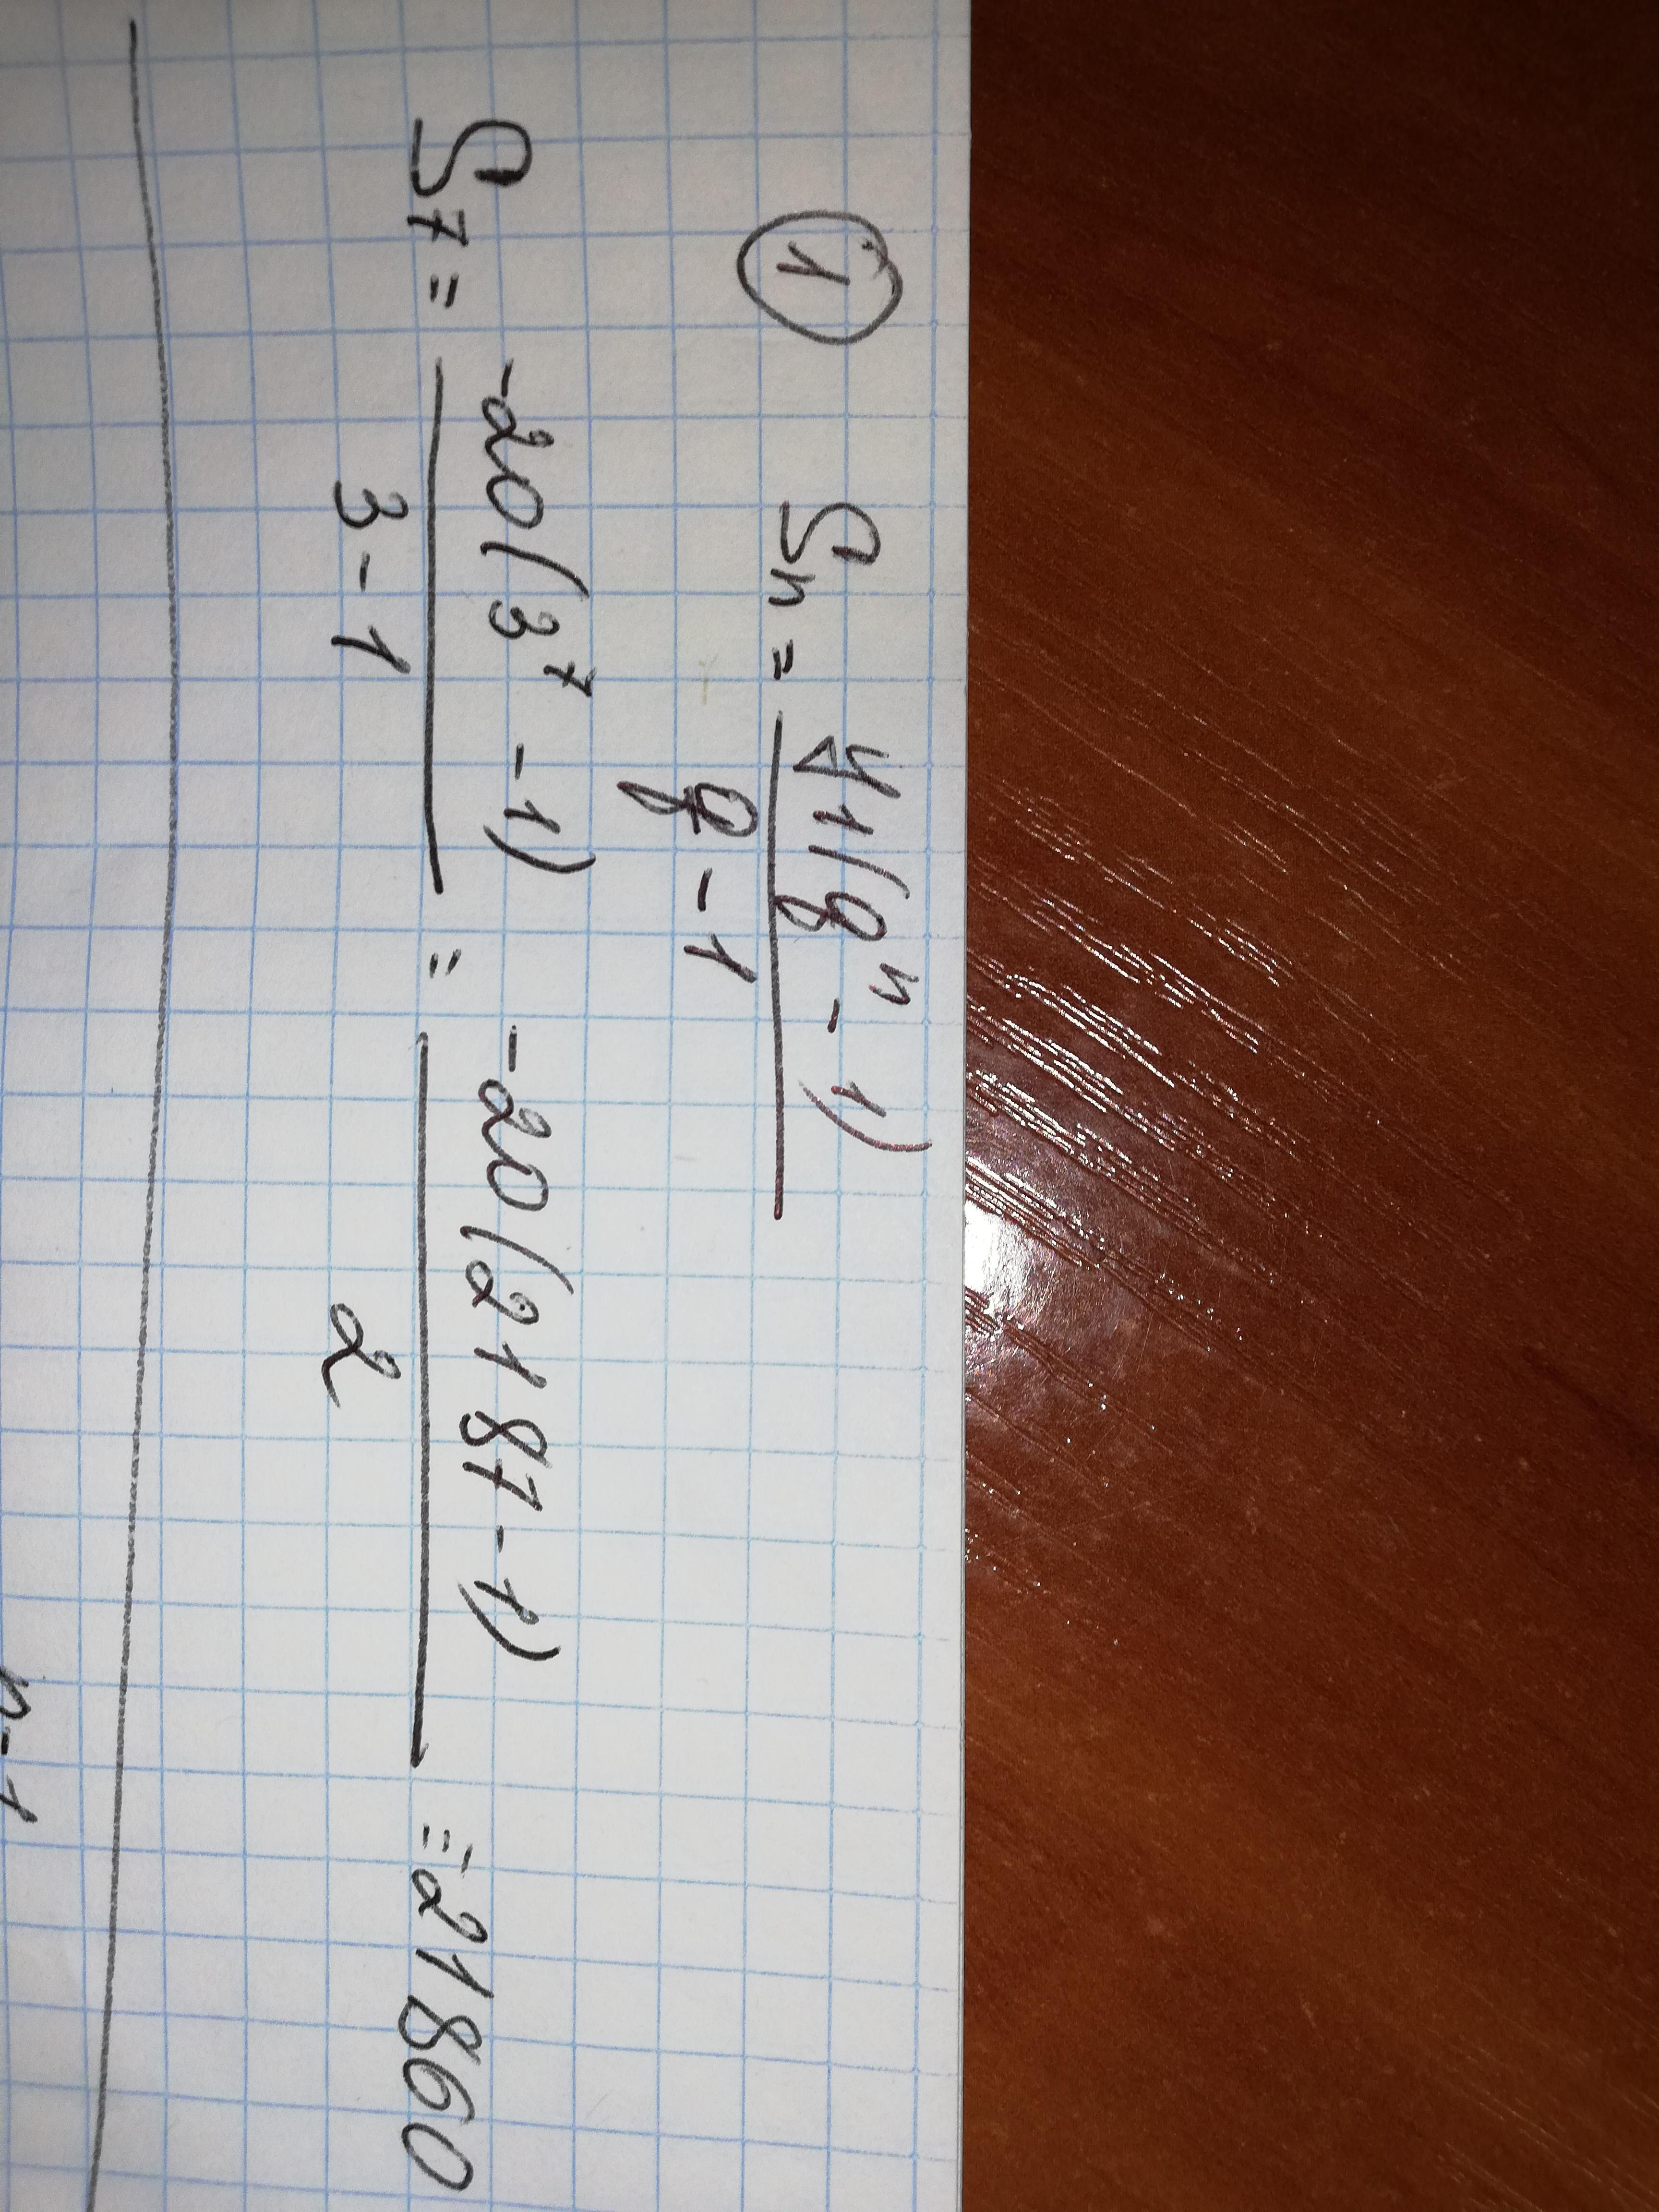 ① Sn = y1(q^n - 1) / q - 1
S7 = -20(3^7 - 1) / 3 - 1 = -20(2187 - 1) / 2 = -21860
n-1